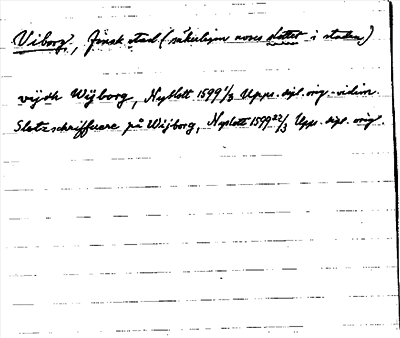 Viborg, finsk stad (säkerligen avses slottet i staden)
vijdh Wijborg, Nyslott 1599 1/3 Upps. dipl. orig.-vidim.
Slotzschriffuare på Wijborg, Nyslott 1599 22/3 Upps. dipl. orig.